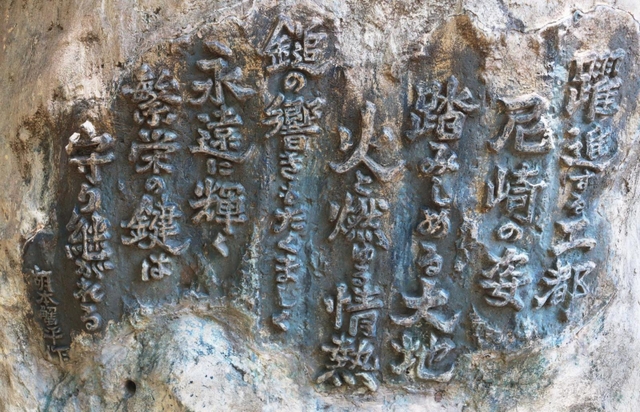 躍進する工都
尼崎の姿
踏みしめる大地
火と燃ゆる情熱
鎚の響きもたくましく
永遠に輝く
繁栄の鍵は
守り継がれる
平作